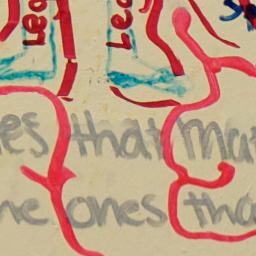 Lea
es that mat
he ones tha